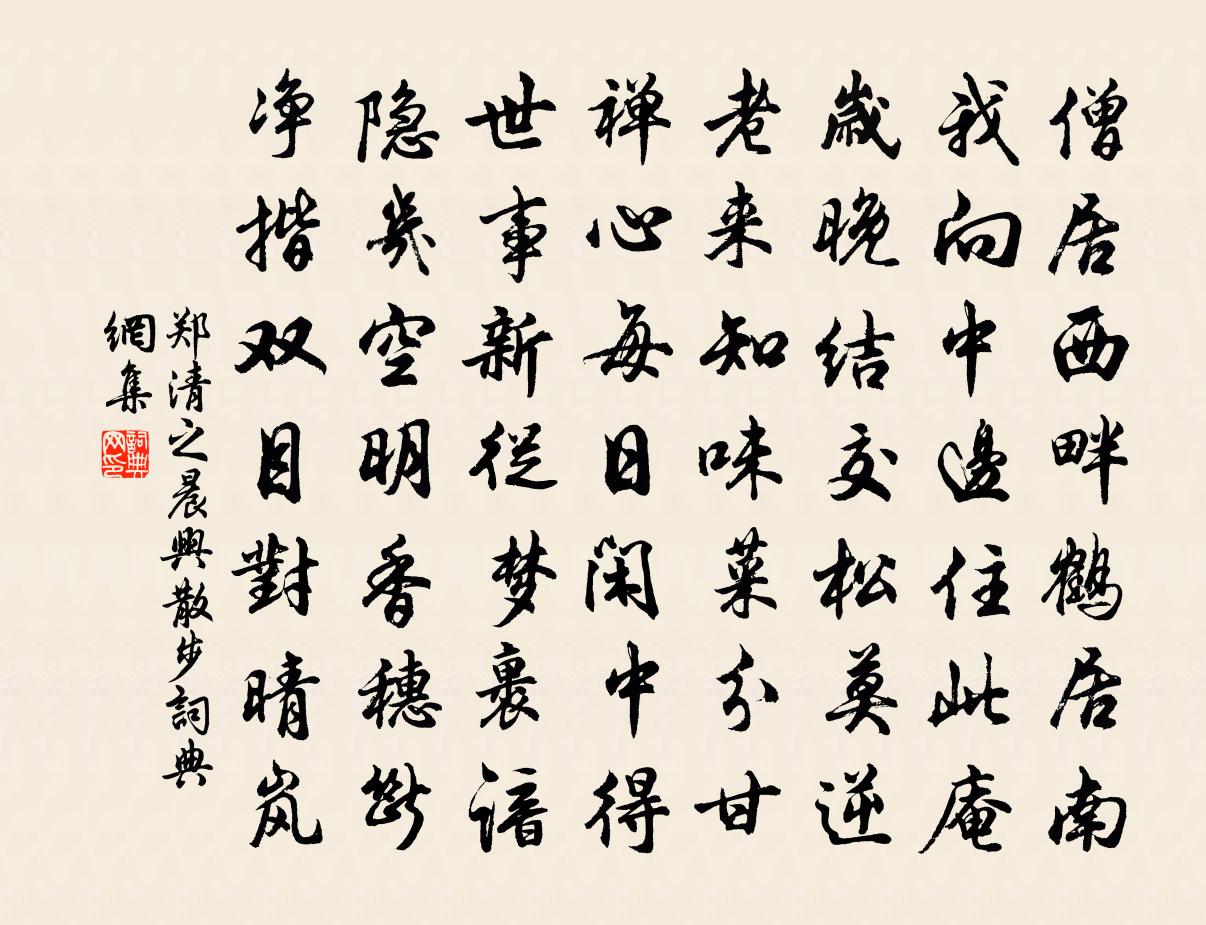 僧居西畔鹤居南
我向中邊住此庵
歲晚结交松莫逆
老来知味菜分甘
禅心每日闲中得
世事新従梦裏谙
隐几空明香穗斷
净揩双目對晴岚
郑清之晨興散步詞典
網集
詞典网印